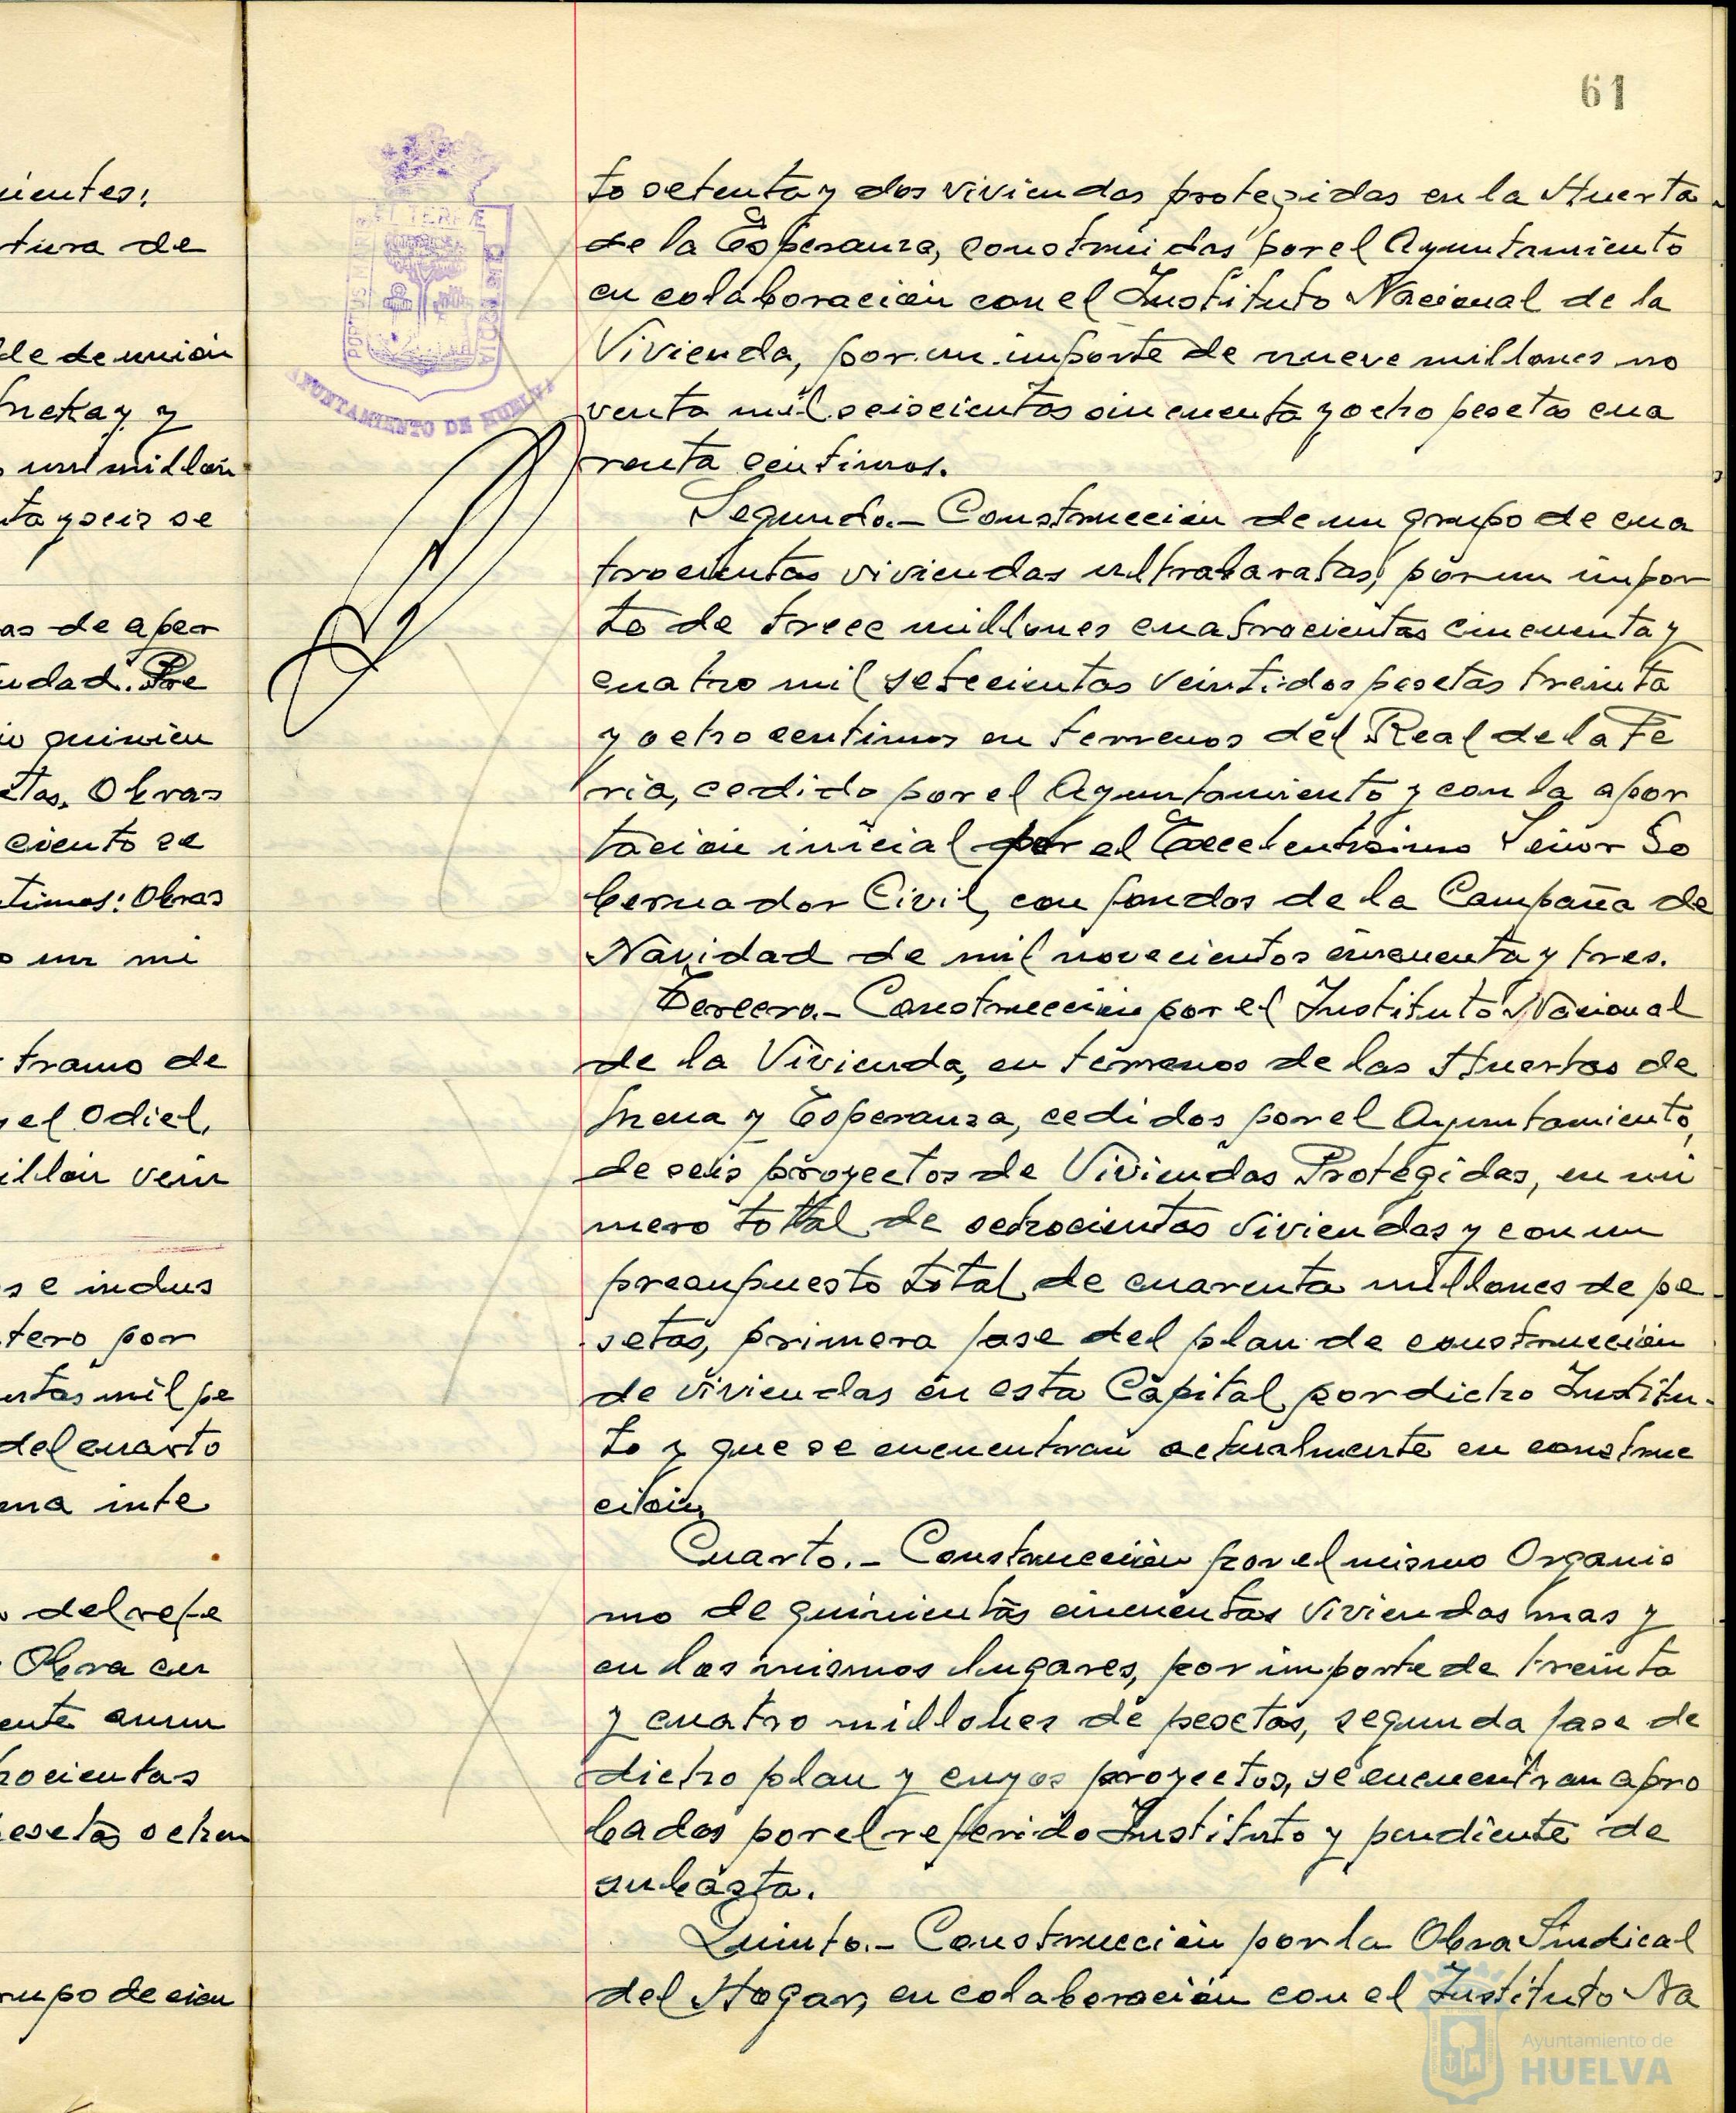 61
ientes:
tura de
de de unión
y
un millón
ta y seis se
as de aper
udad. Pre
quinien
tas. Obras
ciento se
timos: Obras
un mi
tramo de
y el Odiel,
illón vein
s e indus
tero por
entas mil pe
del cuarto
una inte
del refe
Obra cen
ente anun
rocientas
esetas ochen
rupo de cien
PORTUS MARIS ET TERRAE CUSTODIA
AYUNTAMIENTO DE HUELVA
to setenta y dos viviendas protegidas en la Huerta
de la Esperanza, construidas por el Ayuntamiento
en colaboración con el Instituto Nacional de la
Vivienda, por un importe de nueve millones no
venta mil seiscientas cincuenta y ocho pesetas cua
renta centimos.
Segundo.- Construcción de un grupo de cua
trocientas viviendas ultrabaratas, por un impor
te de trece millones cuatrocientas cincuenta y
cuatro mil setecientas veintidos pesetas treinta
y ocho centimos en terrenos del Real de la Fe
ria, cedido por el Ayuntamiento y con la apor
tación inicial por el Excelentísimo Señor Go
bernador Civil, con fondos de la Campaña de
Navidad de mil novecientos cincuenta y tres.
Tercero.- Construcción por el Instituto Nacional
de la Vivienda, en terrenos de las Huertas de
Mena y Esperanza, cedidos por el Ayuntamiento,
de seis proyectos de Viviendas Protegidas, en nú
mero total de ochocientas viviendas y con un
presupuesto total de cuarenta millones de pe
setas, primera fase del plan de construcción
de viviendas en esta Capital por dicho Institu-
to y que se encuentran actualmente en construc
ción.
Cuarto.- Construcción por el mismo Organis
mo de quinientas cincuentas viviendas mas y
en los mismos lugares, por importe de treinta
y cuatro millones de pesetas, segunda fase de
dicho plan y cuyos proyectos, se encuentran apro
bados por el referido Instituto y pendiente de
subasta.
Quinto.- Construcción por la Obra Sindical
del Hogar, en colaboración con el Instituto Na
Ayuntamiento de
HUELVA